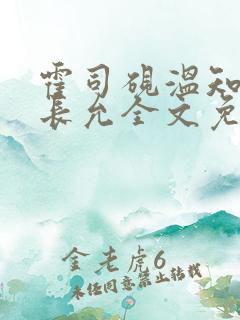 霍司砚温知
长允全文免
金老虎6
未经同意禁止转载